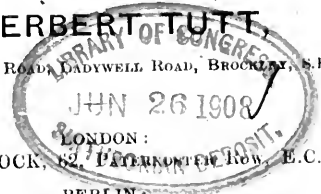 ERBERT TUTT,
ROAD, LADYWELL ROAD, BROCKLEY, S.E
LIBRARY OF CONGRESS
JUN 26 1908
DEPOSIT.
LONDON:
OCK, 62, PATERNOSTER ROW, E.C.
BERLIN: